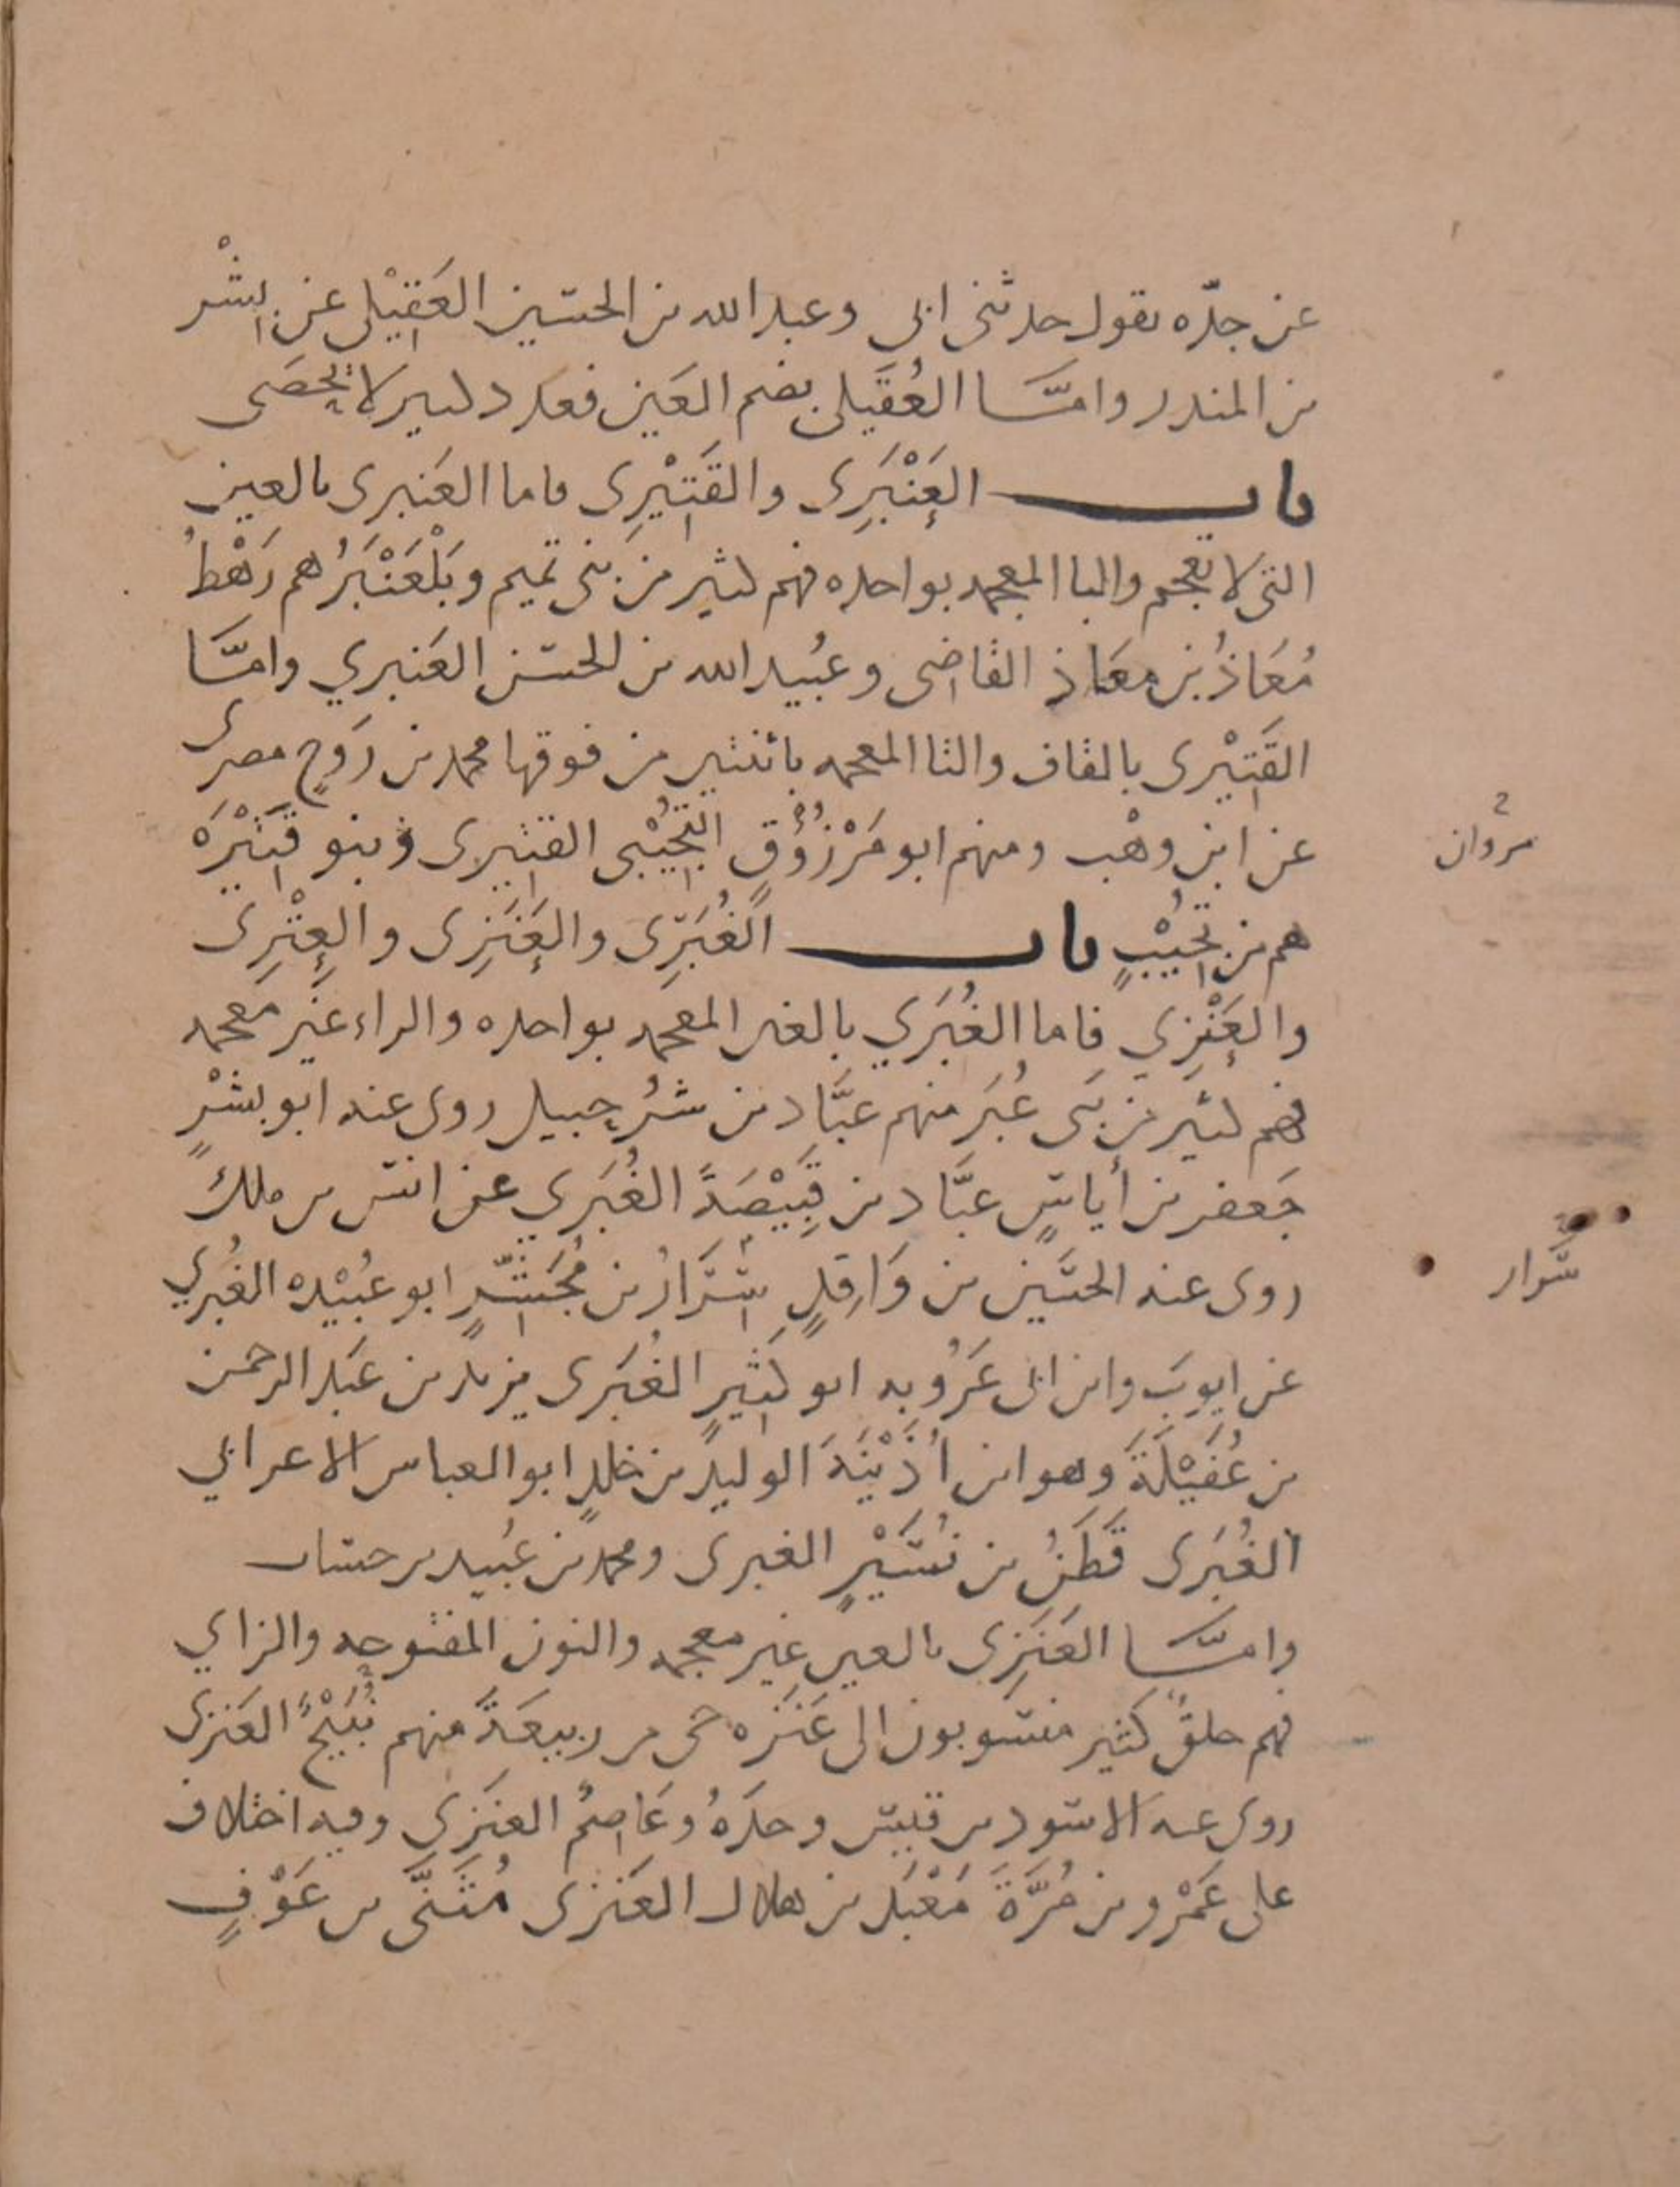 عن جدّه يقول حدثنى ابى وعبد الله بن الحسين العَقِيْلى عن بِشْر
بن المنذر وامَّا العُقَيلى بضم العَين فعدد كثير لا يُحصَى
باب العَنْبَرِى والقَتِيْرِى فاما العَنبرى بالعين
التى لا تعجم والبا المعجمه بواحده فهم كثير من بنى تميم وبَلْعَنْبَرُ هم رَهْطُ
مُعَاذُ بن مَعَاذ القاضى وعُبيد الله بن الحسن العَنبري وامَّا
القَتِيْرى بالقاف والتا المعجمه باثنتين من فوقها محمد بن رَوحٍ مصرى
عن ابن وهْب ومنهم ابو مَرْزُوُقٍ التُجِيْبى القتِيرى وبنو قَتِيْرَه
هم من تُجِيْبٍ باب الغُبَرِّى والعَنَزِى والعِتْرِى
والعَنْزِي فاما الغُبَري بالغين المعجمه بواحده والراء غَير معجمه
فهم كثير من بَنى غُبَر منهم عبَّاد بن شُرحبيل روى عنه ابو بشْرٍ
جَعفر بن أياسٍ عبَّاد بن قَبِيْصَةً الغُبَري عن انس بن ملك
روى عنه الحسَين بن وَاقِدٍ سَّرَارُ بن مُجَشِّرٍ ابو عُبيْده الغُبري
عن ايوبَ وابن ابى عَرُوبه ابو كثِيرٍ الغُبَرى يزيد بن عَبد الرحمن
بن غُفَيْلَةَ وهو ابن اُذَيْنَةَ الوليد بن خلدٍ ابو العباس الاعرابي
الغُبَرى قَطَنُ بن نُسَيْرٍ الغبرى ومحمد بن عُبيد بن حساب
وامَّا العَنَزِى بالعين غير معجمه والنون المفتوحه والزاي
فهم خلقٌ كثير منسوبون الى عَنَزه حى من ربيعَةَ منهم نُبَيْحٌ العَنزى
روى عنه الاسود بن قيس وحدَهُ وعَاصمٌ العنَزِي وفيه اختلاف
على عَمْرو بن مُرَّةَ مَعْبَد بن هلال العَنزى مُثَنَّى بن عَوْفٍ
مروان
سَّرار